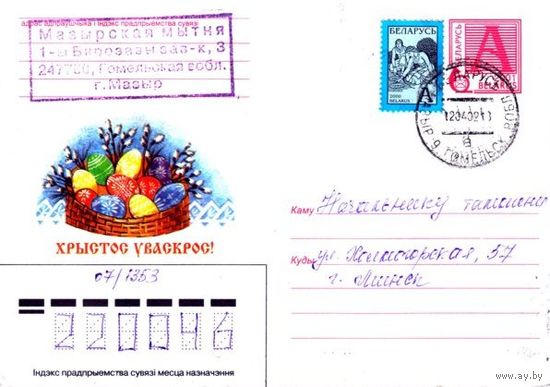 адрас адпраўшчыка і індэкс прадпрыемства сувязі
Мазырская мытня
1-ы Бярозавы зав-к, 3
247760, Гомельская вобл.
г. Мазыр
БЕЛАРУСЬ
2000
BELARUS
БЕЛАРУСЬ
А
BELARUS
БЕЛАРУСЬ
МАЗЫР 9 ГОМЕЛЬСК. ВОБЛ.
120402
Каму Начальнику таможни
Куды ул. Холмогорская, 57
г. Минск
ХРЫСТОС УВАСКРОС!
07/1353
220046
Індэкс прадпрыемства сувязі месца назначэння
www.ay.by